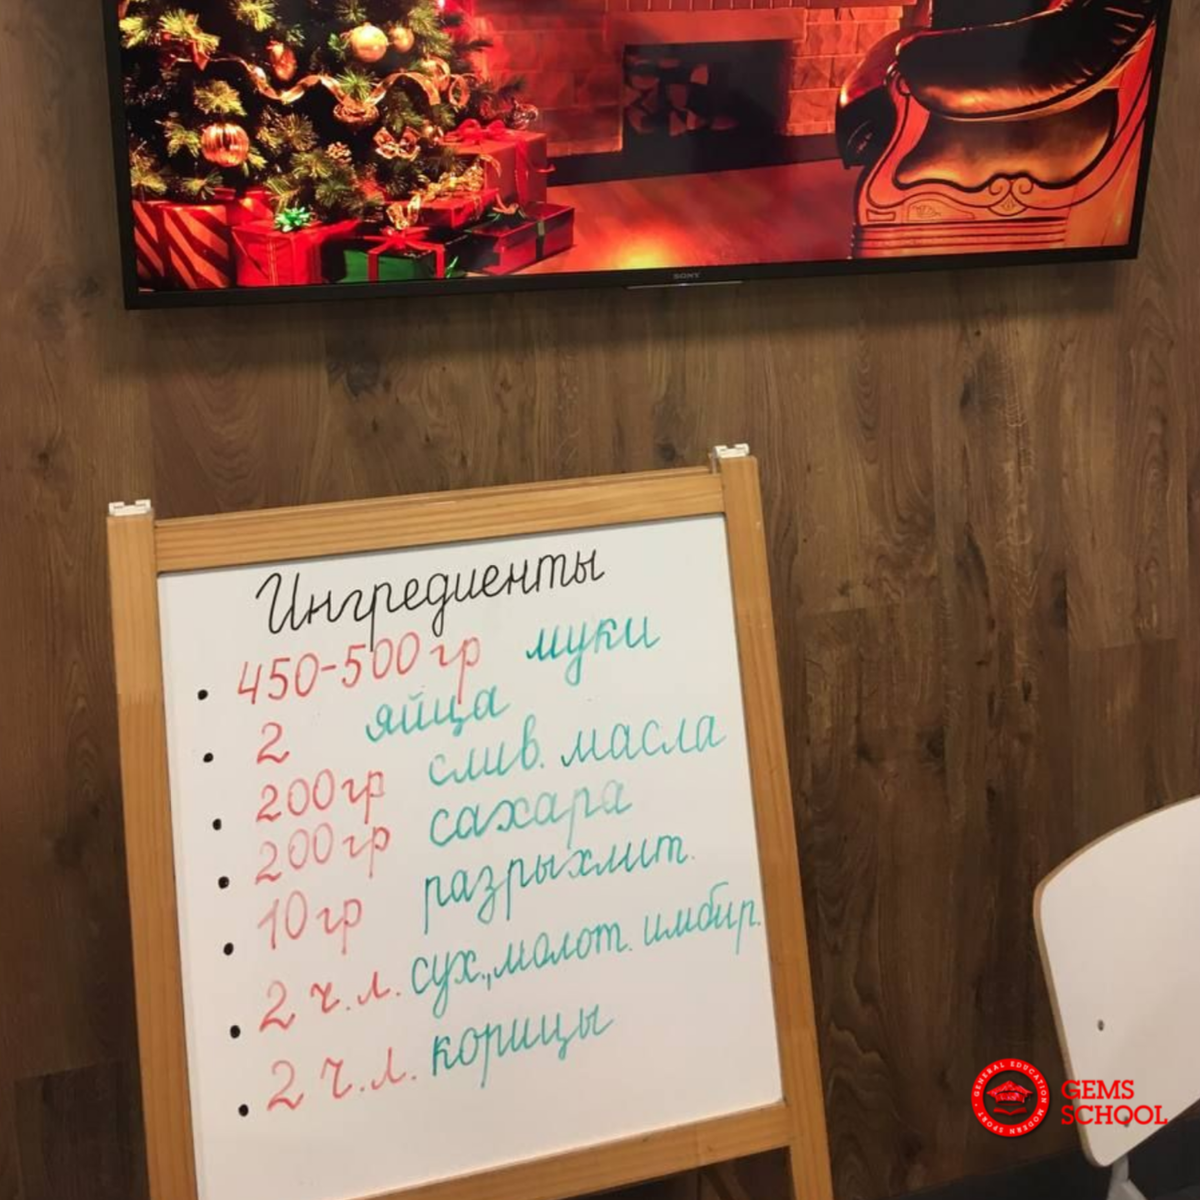 SONY
Ингредиенты
• 450-500 гр муки
• 2 яйца
• 200 гр слив. масла
• 200 гр сахара
• 10 гр разрыхлит.
• 2 ч.л. сух., молот. имбир.
• 2 ч.л. корицы
GENERAL EDUCATION MODERN SPORT
GEMS
SCHOOL